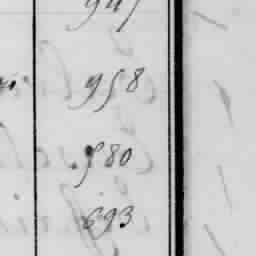 958
580
693